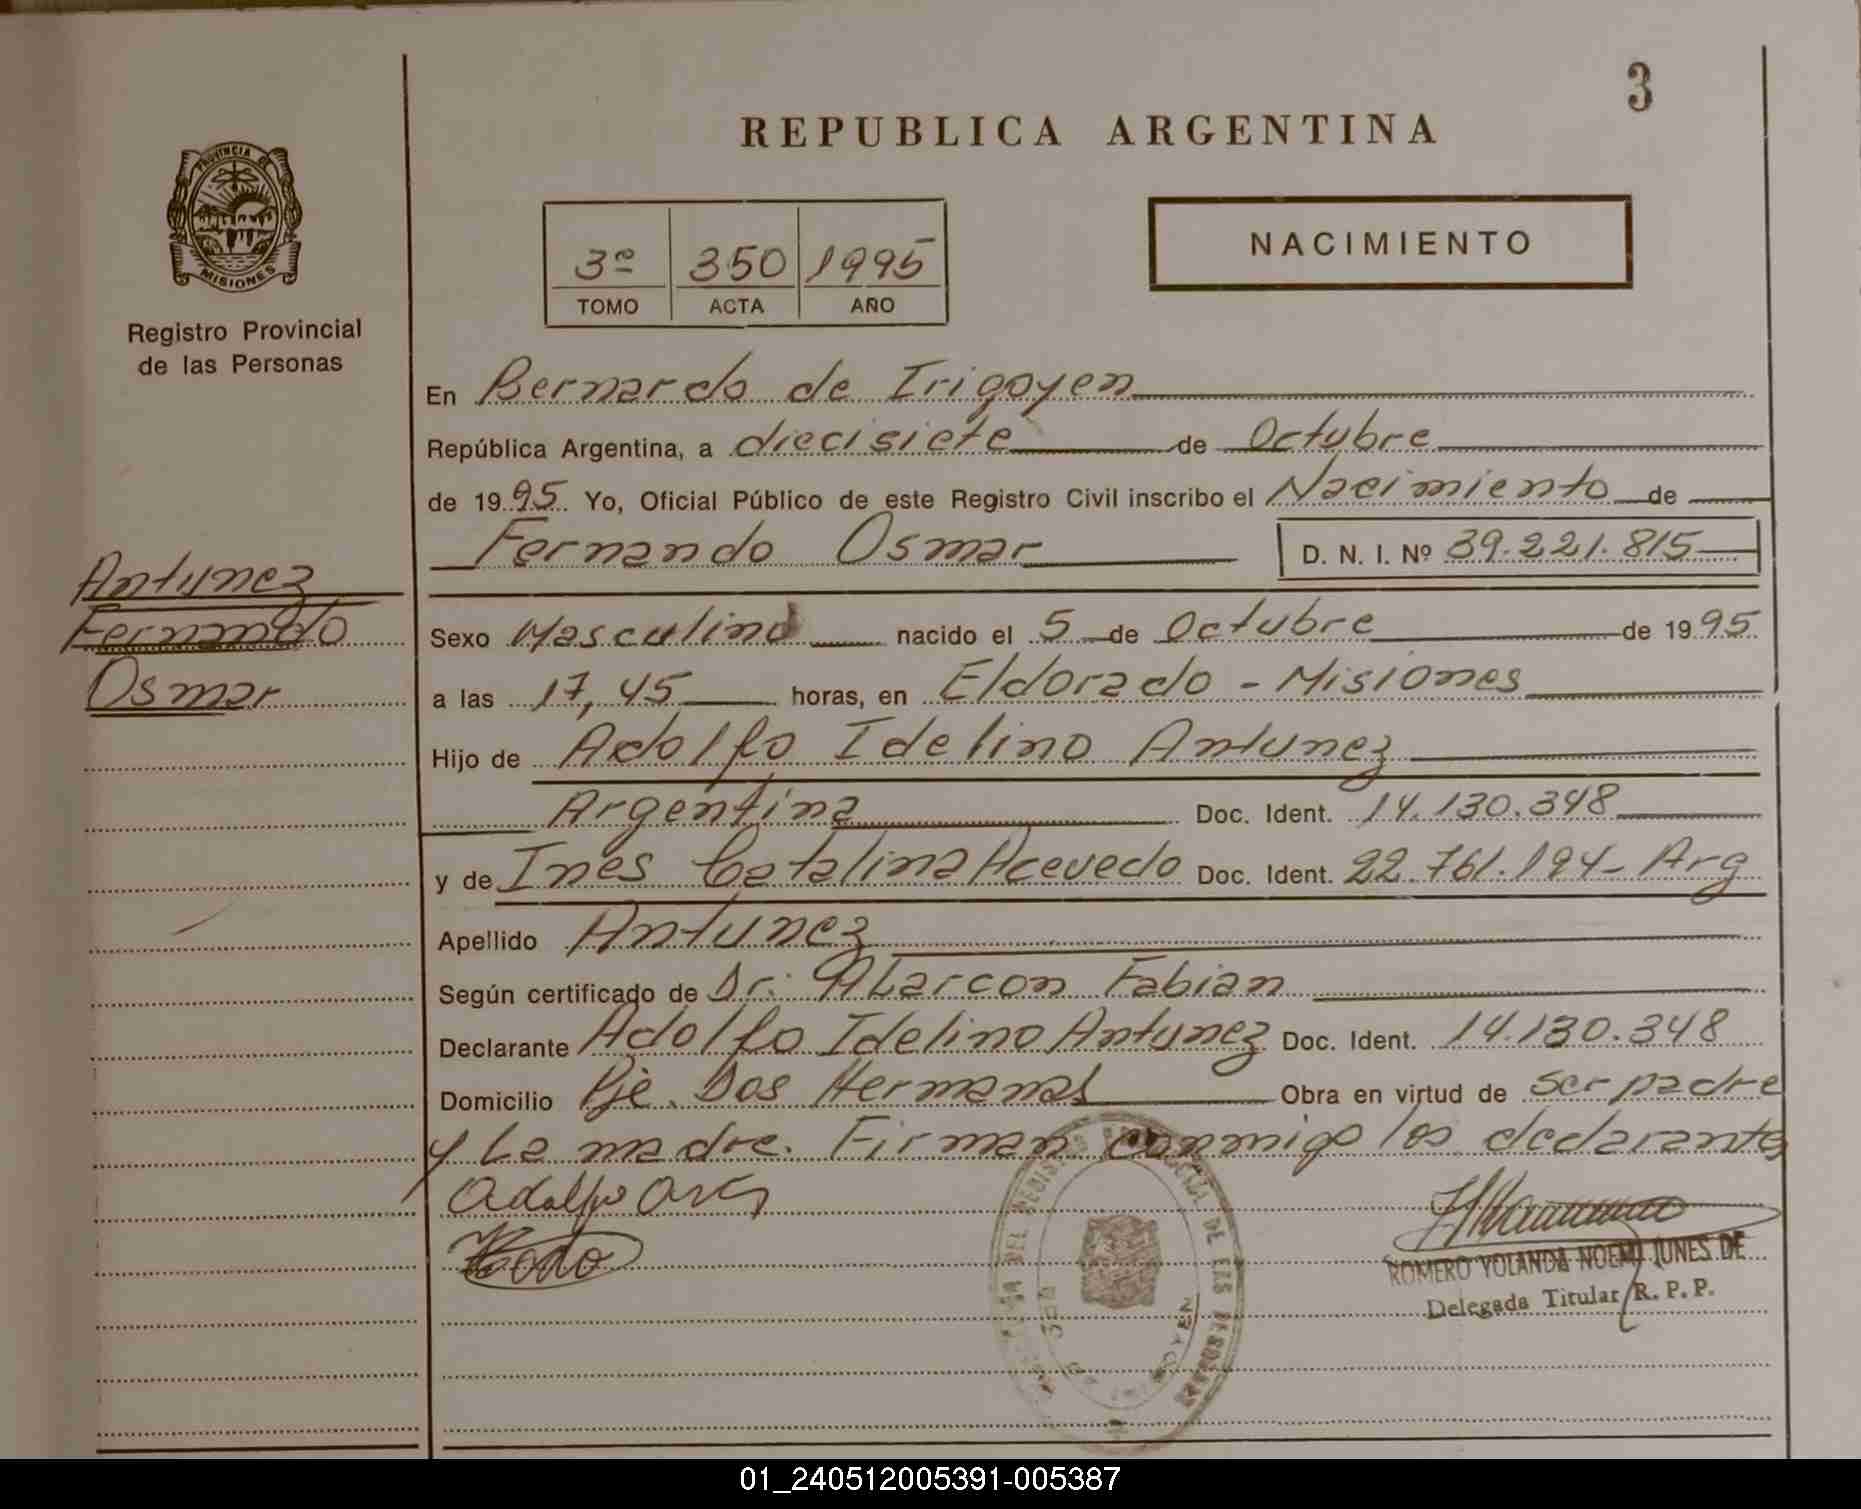 3
REPUBLICA ARGENTINA
PROVINCIA DE
MISIONES
Registro Provincial
de las Personas
3º 350 1995
TOMO ACTA AÑO
NACIMIENTO
En Bernardo de Irigoyen
República Argentina, a diecisiete de Octubre
de 1995 Yo, Oficial Público de este Registro Civil inscribo el Nacimiento de
Fernando Osmar D. N. I. Nº 39.221.815
Antunez
Fernando
Osmar
Sexo Masculino nacido el 5 de Octubre de 1995
a las 17,45 horas, en Eldorado - Misiones
Hijo de Adolfo Idelino Antunez
Argentina Doc. Ident. 14.130.348
y de Ines Catalina Acevedo Doc. Ident. 22.761.194- Arg
Apellido Antunez
Según certificado de Dr. Alarcon Fabian
Declarante Adolfo Idelino Antunez Doc. Ident. 14.130.348
Domicilio Pje. Dos Hermanas Obra en virtud de ser padre
y La madre. Firman conmigo los declarantes
Adolfo
ROMERO YOLANDA NOEMI JUNES DE
Delegada Titular R. P. P.
01_240512005391-005387